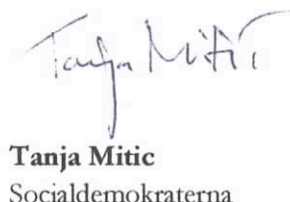 Tanja Mitić
Tanja Mitic
Socialdemokraterna